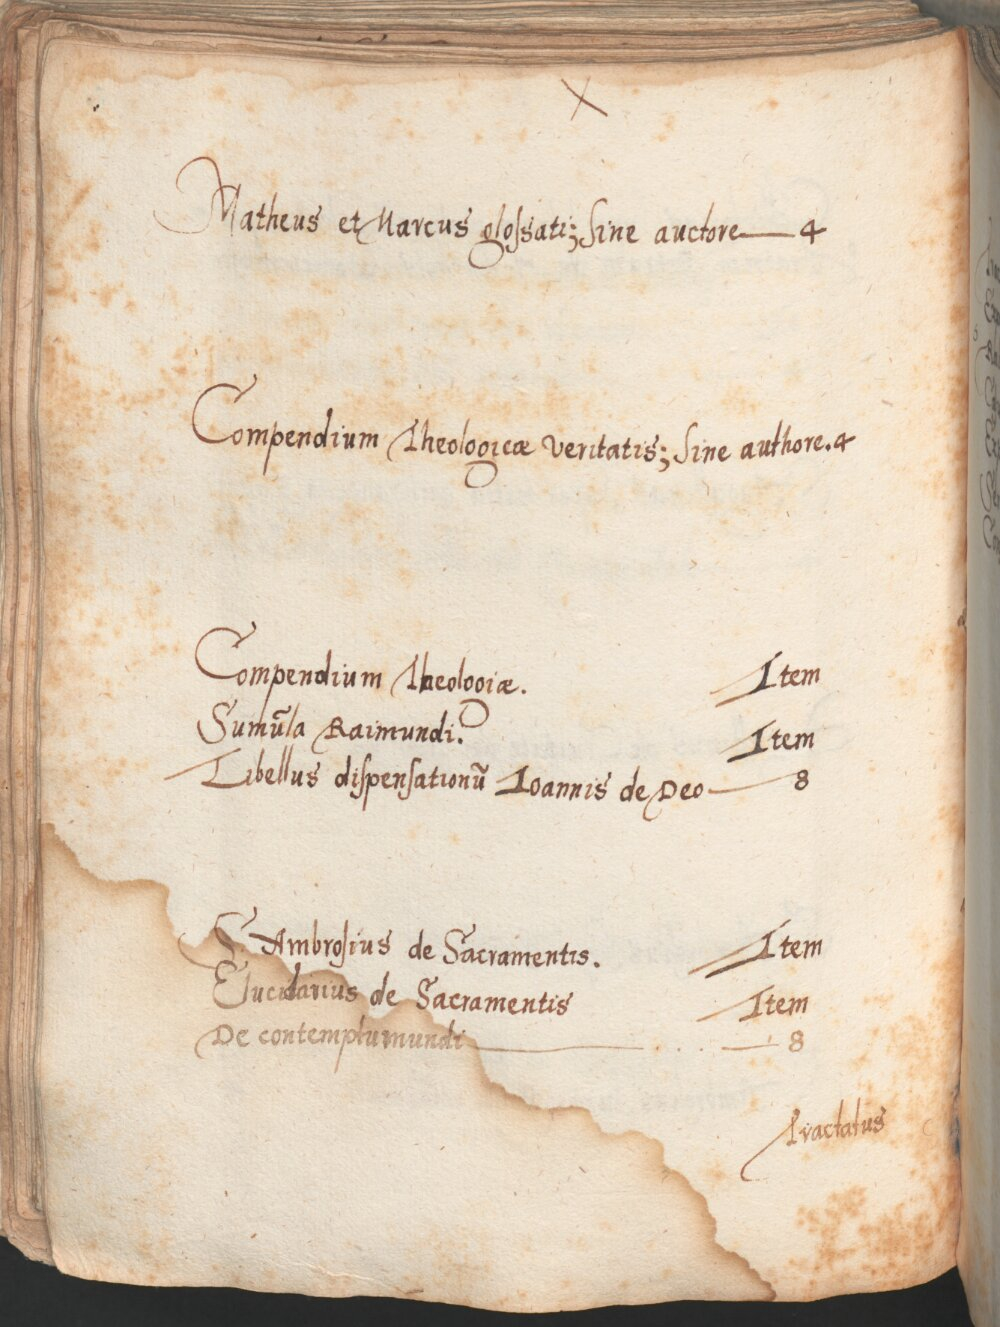 Matheus et Marcus glossati; Sine auctore — 4
Compendium Theologicæ veritatis; Sine authore. 4
Compendium Theologiæ. Item
Sumũla Raimundi. Item
Libellus dispensationũ Ioannis de Deo — 8
S. Ambrosius de Sacramentis. Item
Elucidarius de Sacramentis Item
De contemptu mundi — 8
Tractatus